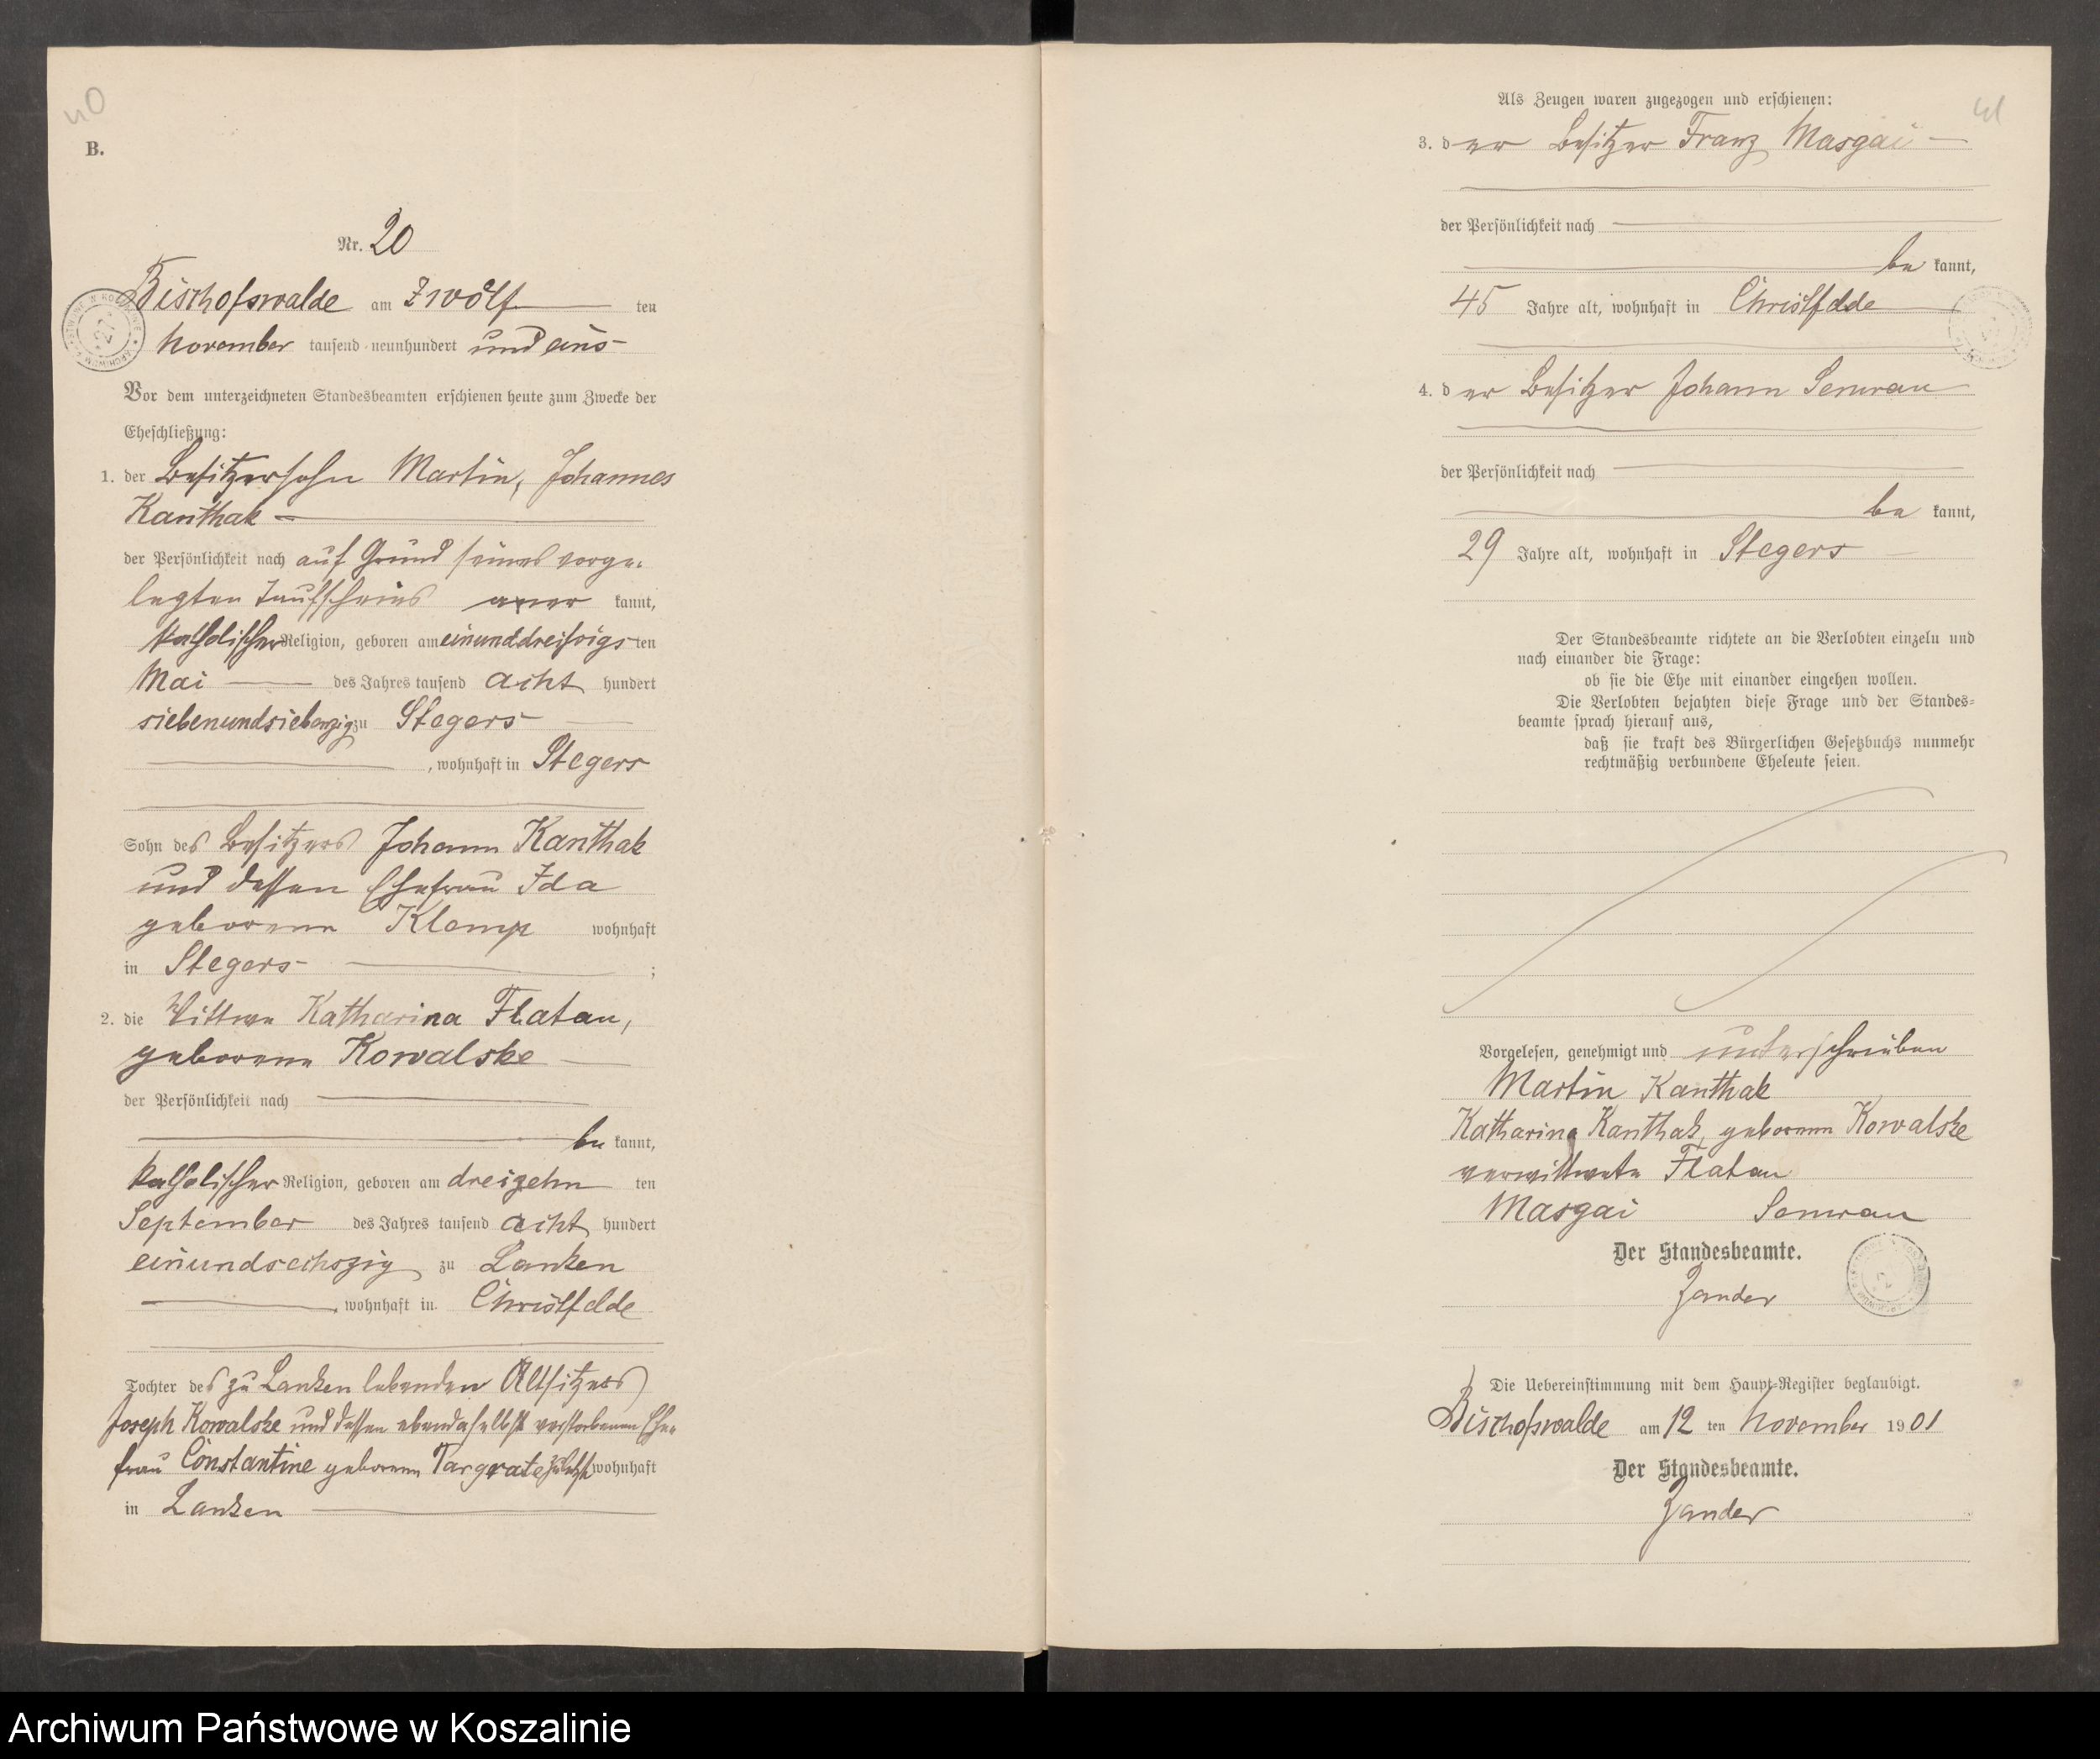 40
B.
Nr. 20
Bischofswalde am zwölf ten
November tausend neunhundert und eins
Vor dem unterzeichneten Standesbeamten erschienen heute zum Zwecke der
Eheschließung:
1. der Besitzersohn Martin, Johannes
Kanthak
der Persönlichkeit nach auf Grund seines vorge-
legten Taufscheins aner kannt,
katholischer Religion, geboren am einunddreißigs ten
Mai des Jahres tausend acht hundert
siebenundsiebenzig zu Stegers
, wohnhaft in Stegers
Sohn des Besitzers Johann Kanthak
und dessen Ehefrau Ida
geborene Klemp wohnhaft
in Stegers ;
2. die Wittwe Katharina Flatau,
geborene Kowalske
der Persönlichkeit nach
be kannt,
katholischer Religion, geboren am dreizehn ten
September des Jahres tausend acht hundert
einundsechszig zu Lanken
, wohnhaft in Christfelde
Tochter des zu Lanken lebenden Altsitzers
Joseph Kowalske und dessen ebendaselbst verstorbenen Ehe-
frau Constantine geborenen Targrate zuletzt wohnhaft
in Lanken
41
Als Zeugen waren zugezogen und erschienen:
3. der Besitzer Franz Masgai
der Persönlichkeit nach
be kannt,
45 Jahre alt, wohnhaft in Christfelde
4. der Besitzer Johann Semrau
der Persönlichkeit nach
be kannt,
29 Jahre alt, wohnhaft in Stegers
Der Standesbeamte richtete an die Verlobten einzeln und
nach einander die Frage:
ob sie die Ehe mit einander eingehen wollen.
Die Verlobten bejahten diese Frage und der Standes-
beamte sprach hierauf aus,
daß sie kraft des Bürgerlichen Gesetzbuchs nunmehr
rechtmäßig verbundene Eheleute seien.
Vorgelesen, genehmigt und unterschrieben
Martin Kanthak
Katharina Kanthak, geborene Kowalske
verwittwete Flatau
Masgai Semrau
Der Standesbeamte.
Zander
Die Uebereinstimmung mit dem Haupt-Register beglaubigt.
Bischofswalde am 12 ten November 1901
Der Standesbeamte.
Zander
Archiwum Państwowe w Koszalinie